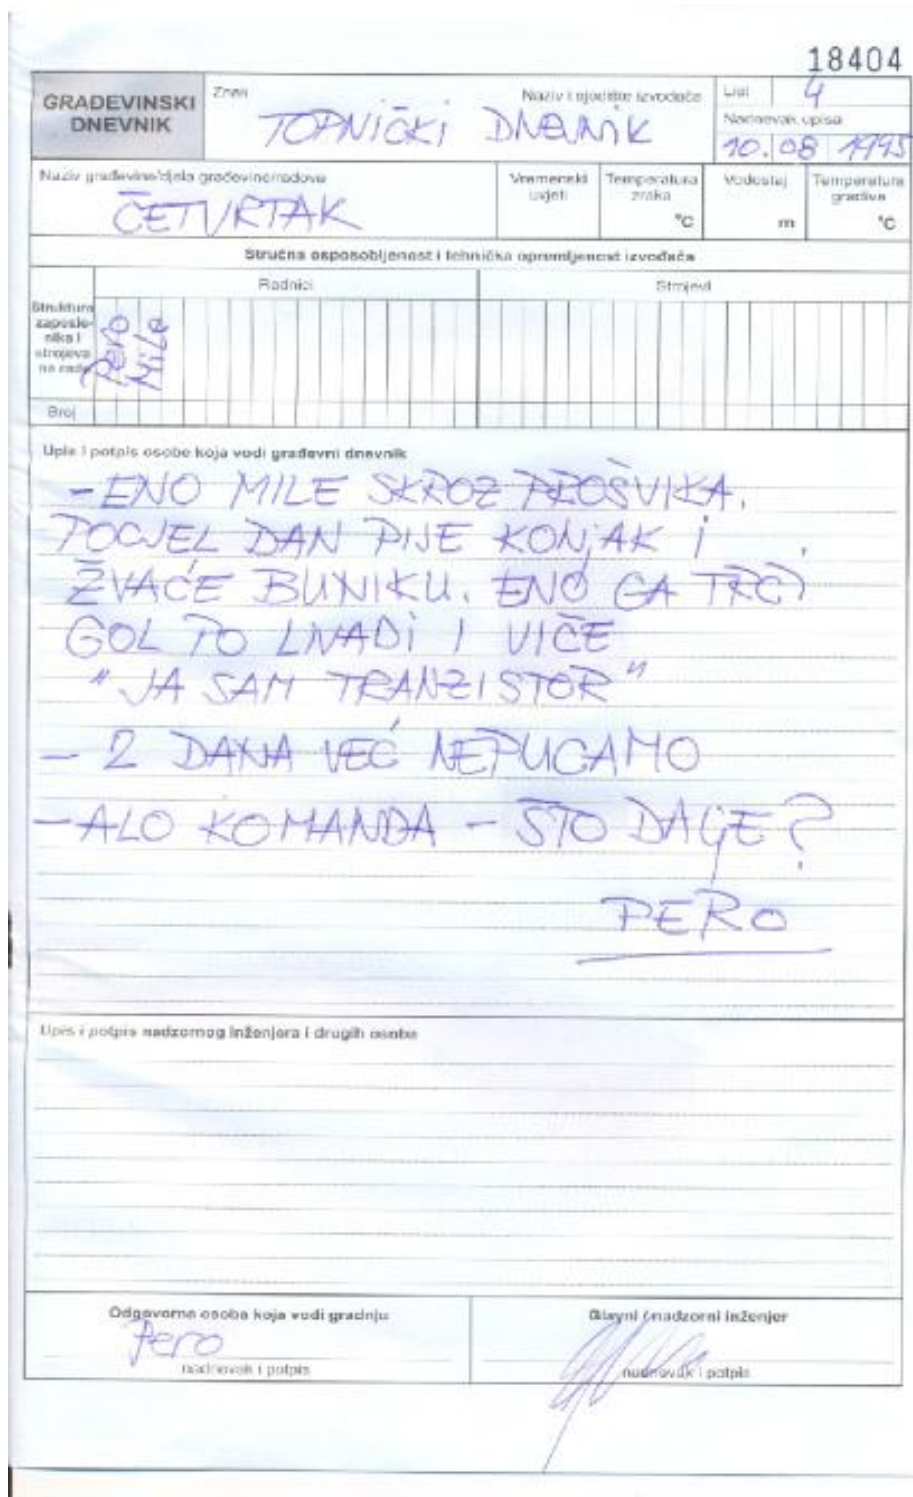 18404
GRAĐEVINSKI
DNEVNIK
Znak
Naziv i sjedište izvođača
List
4
TOPNIČKI DNEVNIK
Nadnevak upisa
10.08 1995
Naziv građevine/dijela građevine/radova
ČETVRTAK
Vremenski
uvjeti
Temperatura
zraka
°C
Vodostaj
m
Temperatura
gradiva
°C
Stručna osposobljenost i tehnička opremljenost izvođača
Radnici
Strojevi
Struktura
zaposle-
nika i
strojeva
na radu
Pero
Mile
Broj
Upis i potpis osobe koja vodi građevni dnevnik
- ENO MILE SKROZ PROŠVIKA.
POCJEL DAN PIJE KONJAK I
ŽVAĆE BUNIKU. ENO GA TRČI
GOL PO LIVADI I VIČE
"JA SAM TRANZISTOR"
- 2 DANA VEĆ NEPUCAMO
- ALO KOMANDA - ŠTO DALJE?
PERO
Upis i potpis nadzornog inženjera i drugih osoba
Odgovorna osoba koja vodi gradnju
Pero
nadnevak i potpis
Glavni nadzorni inženjer
nadnevak i potpis